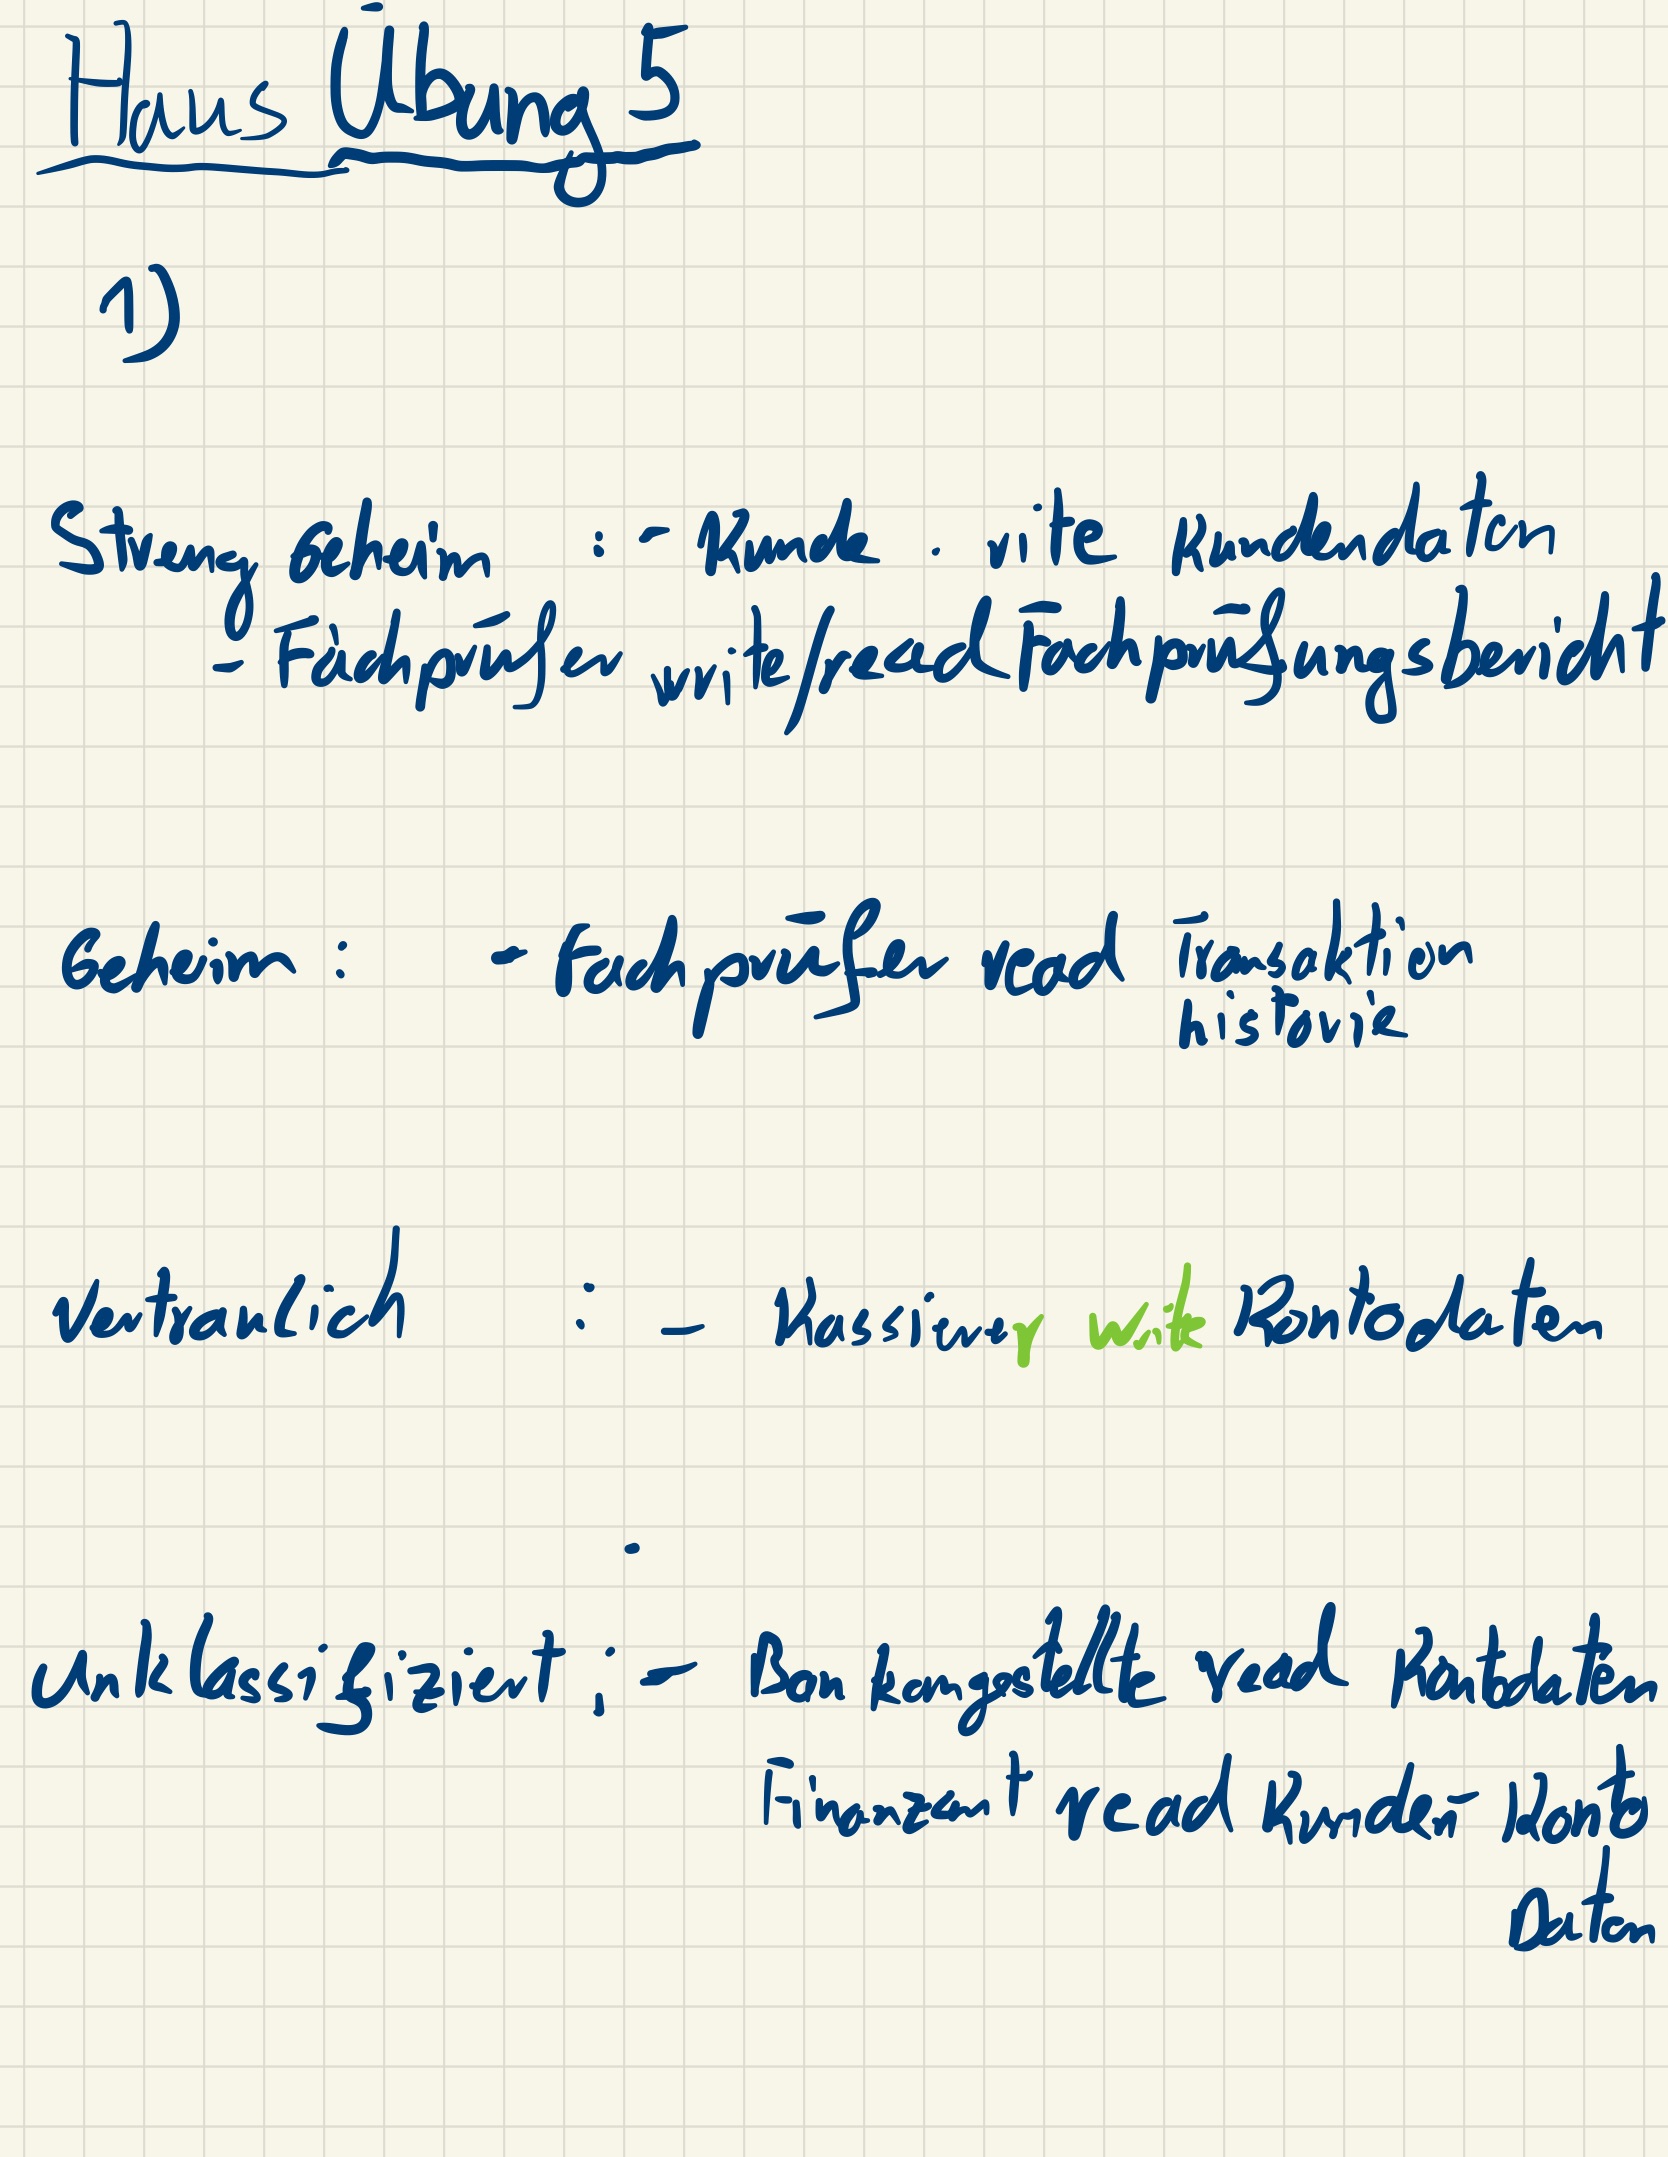 Haus Übung 5
1)
Streng Geheim : - Kunde . rite Kundendaten
- Fachprüfer write/read Fachprüfungsbericht
Geheim : - Fachprüfer read Transaktion
historie
Vertraulich : - Kassierer write Kontodaten
Unklassifiziert : - Bankangestellte read Kontodaten
Finanzamt read Kunden- Konto
Daten